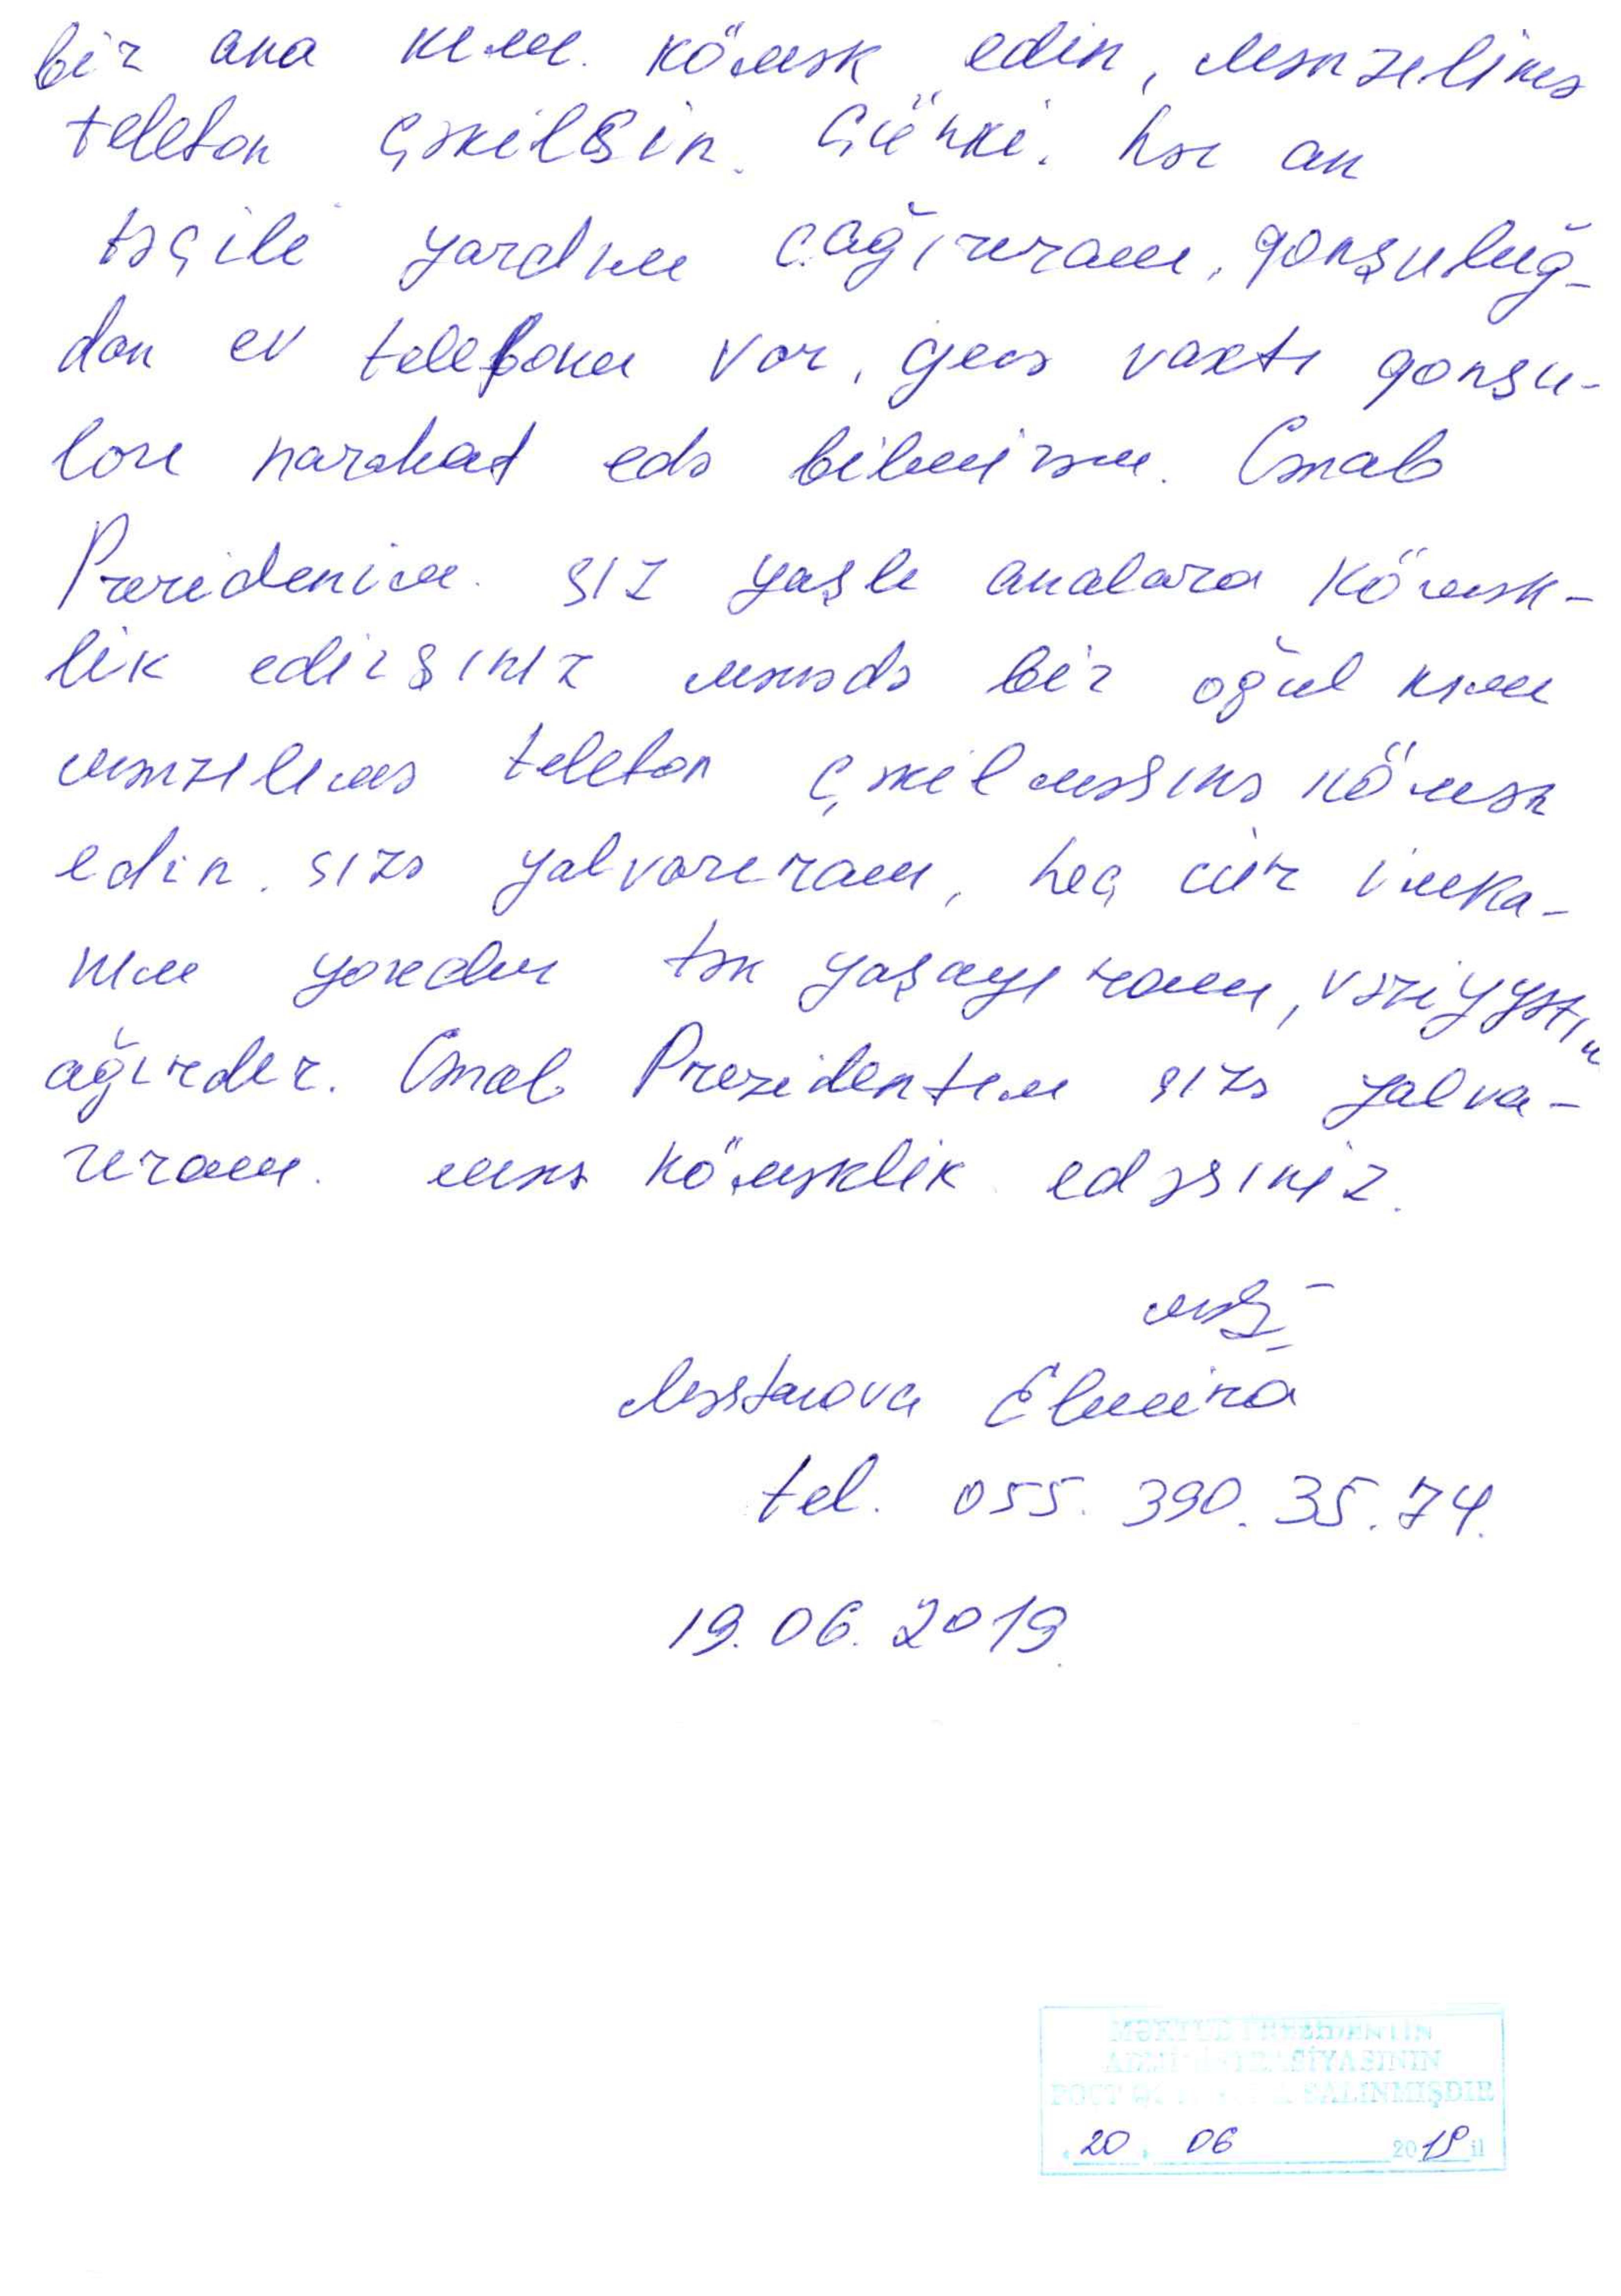 bir ana kimi. kömək edin, mənzelimə
telefon çəkilsin. Çünki. hər an
təcili yardım çağırıram, qonşuluğ-
dan ev telefonu var, gecə vaxtı qonşu-
ları narahat edə bilmirəm. Cənab
Prezidenim. siz yaşlı analara kömək-
lik edirsiniz mənədə bir oğul kimi
mənzelimə telefon çəkilməsinə kömək
edin. sizə yalvarıram, heç cür imka-
nım yoxdur tək yaşayıram, vəziyyətim
ağırdır. Cənab Prezidentim sizə yalva-
rıram. mənə köməklik edəsiniz.
Məstanova Elmira
tel. 055. 390. 35. 74.
19. 06. 2019
MƏKTUB PREZİDENTİN
ADMİNİSTRASİYASININ
POÇT QUTUSUNA SALINMIŞDIR
"20" 06 2019 il